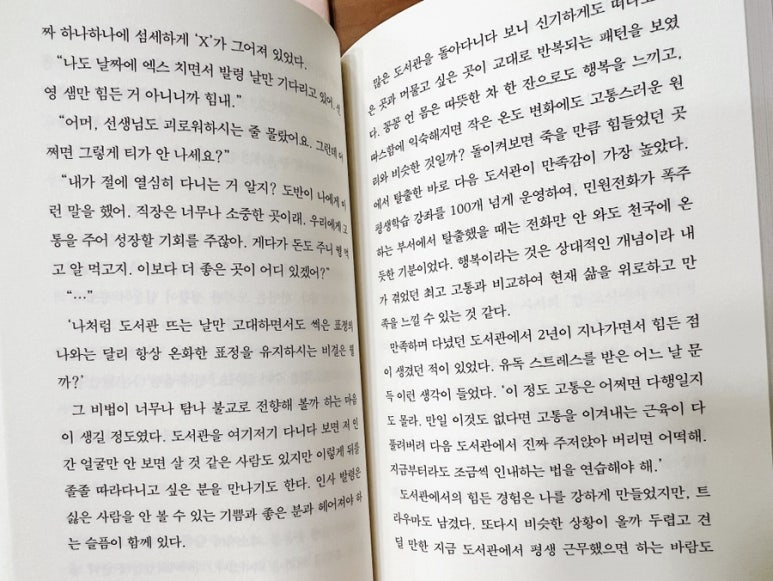 짜 하나하나에 섬세하게 ‘X’가 그어져 있었다.
“나도 날짜에 엑스 치면서 발령 날만 기다리고 있어. 선
영 샘만 힘든 거 아니니까 힘내.”
“어머, 선생님도 괴로워하시는 줄 몰랐어요. 그런데 어
쩌면 그렇게 티가 안 나세요?”
“내가 절에 열심히 다니는 거 알지? 도반이 나에게 이
런 말을 했어. 직장은 너무나 소중한 곳이래. 우리에게 고
통을 주어 성장할 기회를 주잖아. 게다가 돈도 주니 꿩 먹
고 알 먹고지. 이보다 더 좋은 곳이 어디 있겠어?”
“…”
‘나처럼 도서관 뜨는 날만 고대하면서도 썩은 표정의
나와는 달리 항상 온화한 표정을 유지하시는 비결은 뭘
까?’
그 비법이 너무나 탐나 불교로 전향해 볼까 하는 마음
이 생길 정도였다. 도서관을 여기저기 다니다 보면 저 인
간 얼굴만 안 보면 살 것 같은 사람도 있지만 이렇게 뒤를
졸졸 따라다니고 싶은 분을 만나기도 한다. 인사 발령은
싫은 사람을 안 볼 수 있는 기쁨과 좋은 분과 헤어져야 하
는 슬픔이 함께 있다.
많은 도서관을 돌아다니다 보니 신기하게도
은 곳과 머물고 싶은 곳이 교대로 반복되는 패턴을 보였
다. 꽁꽁 언 몸은 따뜻한 차 한 잔으로도 행복을 느끼고,
따스함에 익숙해지면 작은 온도 변화에도 고통스러운 원
리와 비슷한 것일까? 돌이켜보면 죽을 만큼 힘들었던 곳
에서 탈출한 바로 다음 도서관이 만족감이 가장 높았다.
평생학습 강좌를 100개 넘게 운영하여, 민원전화가 폭주
하는 부서에서 탈출했을 때는 전화만 안 와도 천국에 온
듯한 기분이었다. 행복이라는 것은 상대적인 개념이라 내
가 겪었던 최고 고통과 비교하여 현재 삶을 위로하고 만
족을 느낄 수 있는 것 같다.
만족하며 다녔던 도서관에서 2년이 지나가면서 힘든 점
이 생겼던 적이 있었다. 유독 스트레스를 받은 어느 날 문
득 이런 생각이 들었다. ‘이 정도 고통은 어쩌면 다행일지
도 몰라. 만일 이것도 없다면 고통을 이겨내는 근육이 다
풀려버려 다음 도서관에서 진짜 주저앉아 버리면 어떡해.
지금부터라도 조금씩 인내하는 법을 연습해야 해.’
도서관에서의 힘든 경험은 나를 강하게 만들었지만, 트
라우마도 남겼다. 또다시 비슷한 상황이 올까 두렵고 견
딜 만한 지금 도서관에서 평생 근무했으면 하는 바람도